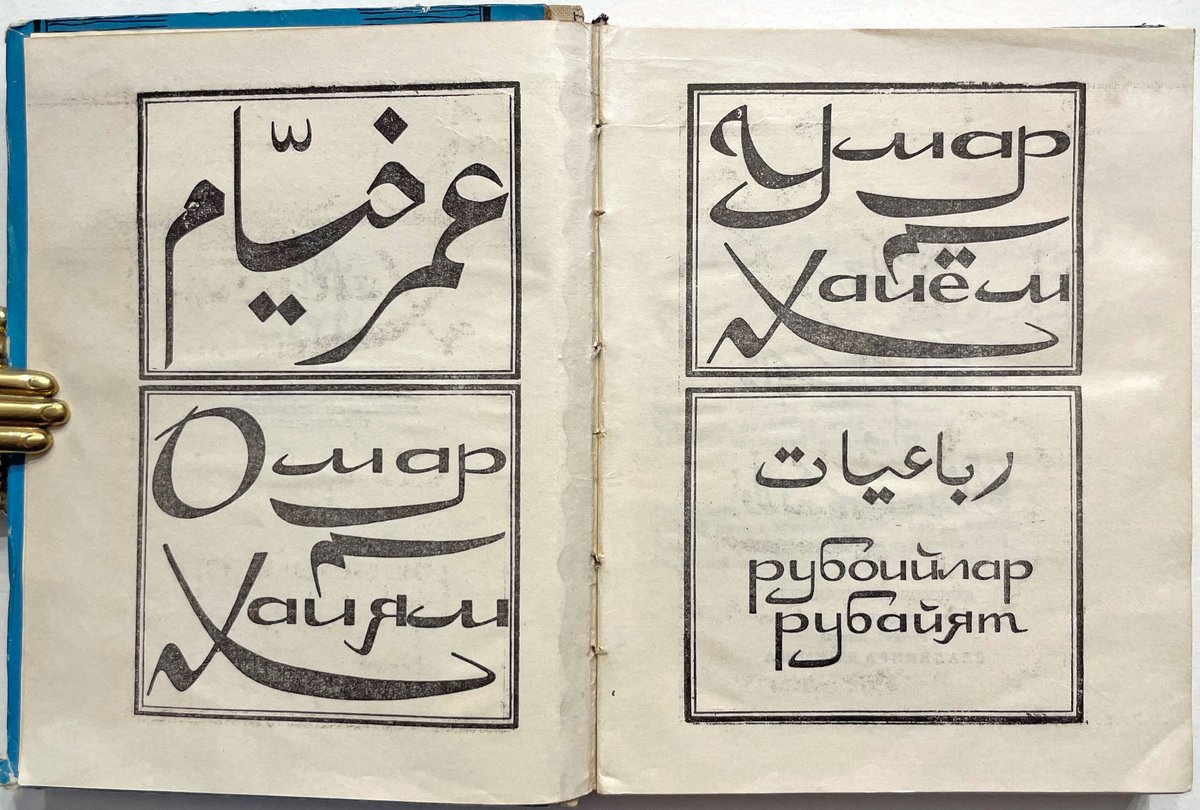 عمر خیّام
Омар
Хайям
Умар
Хайём
رباعیات
рубоийлар
рубайят